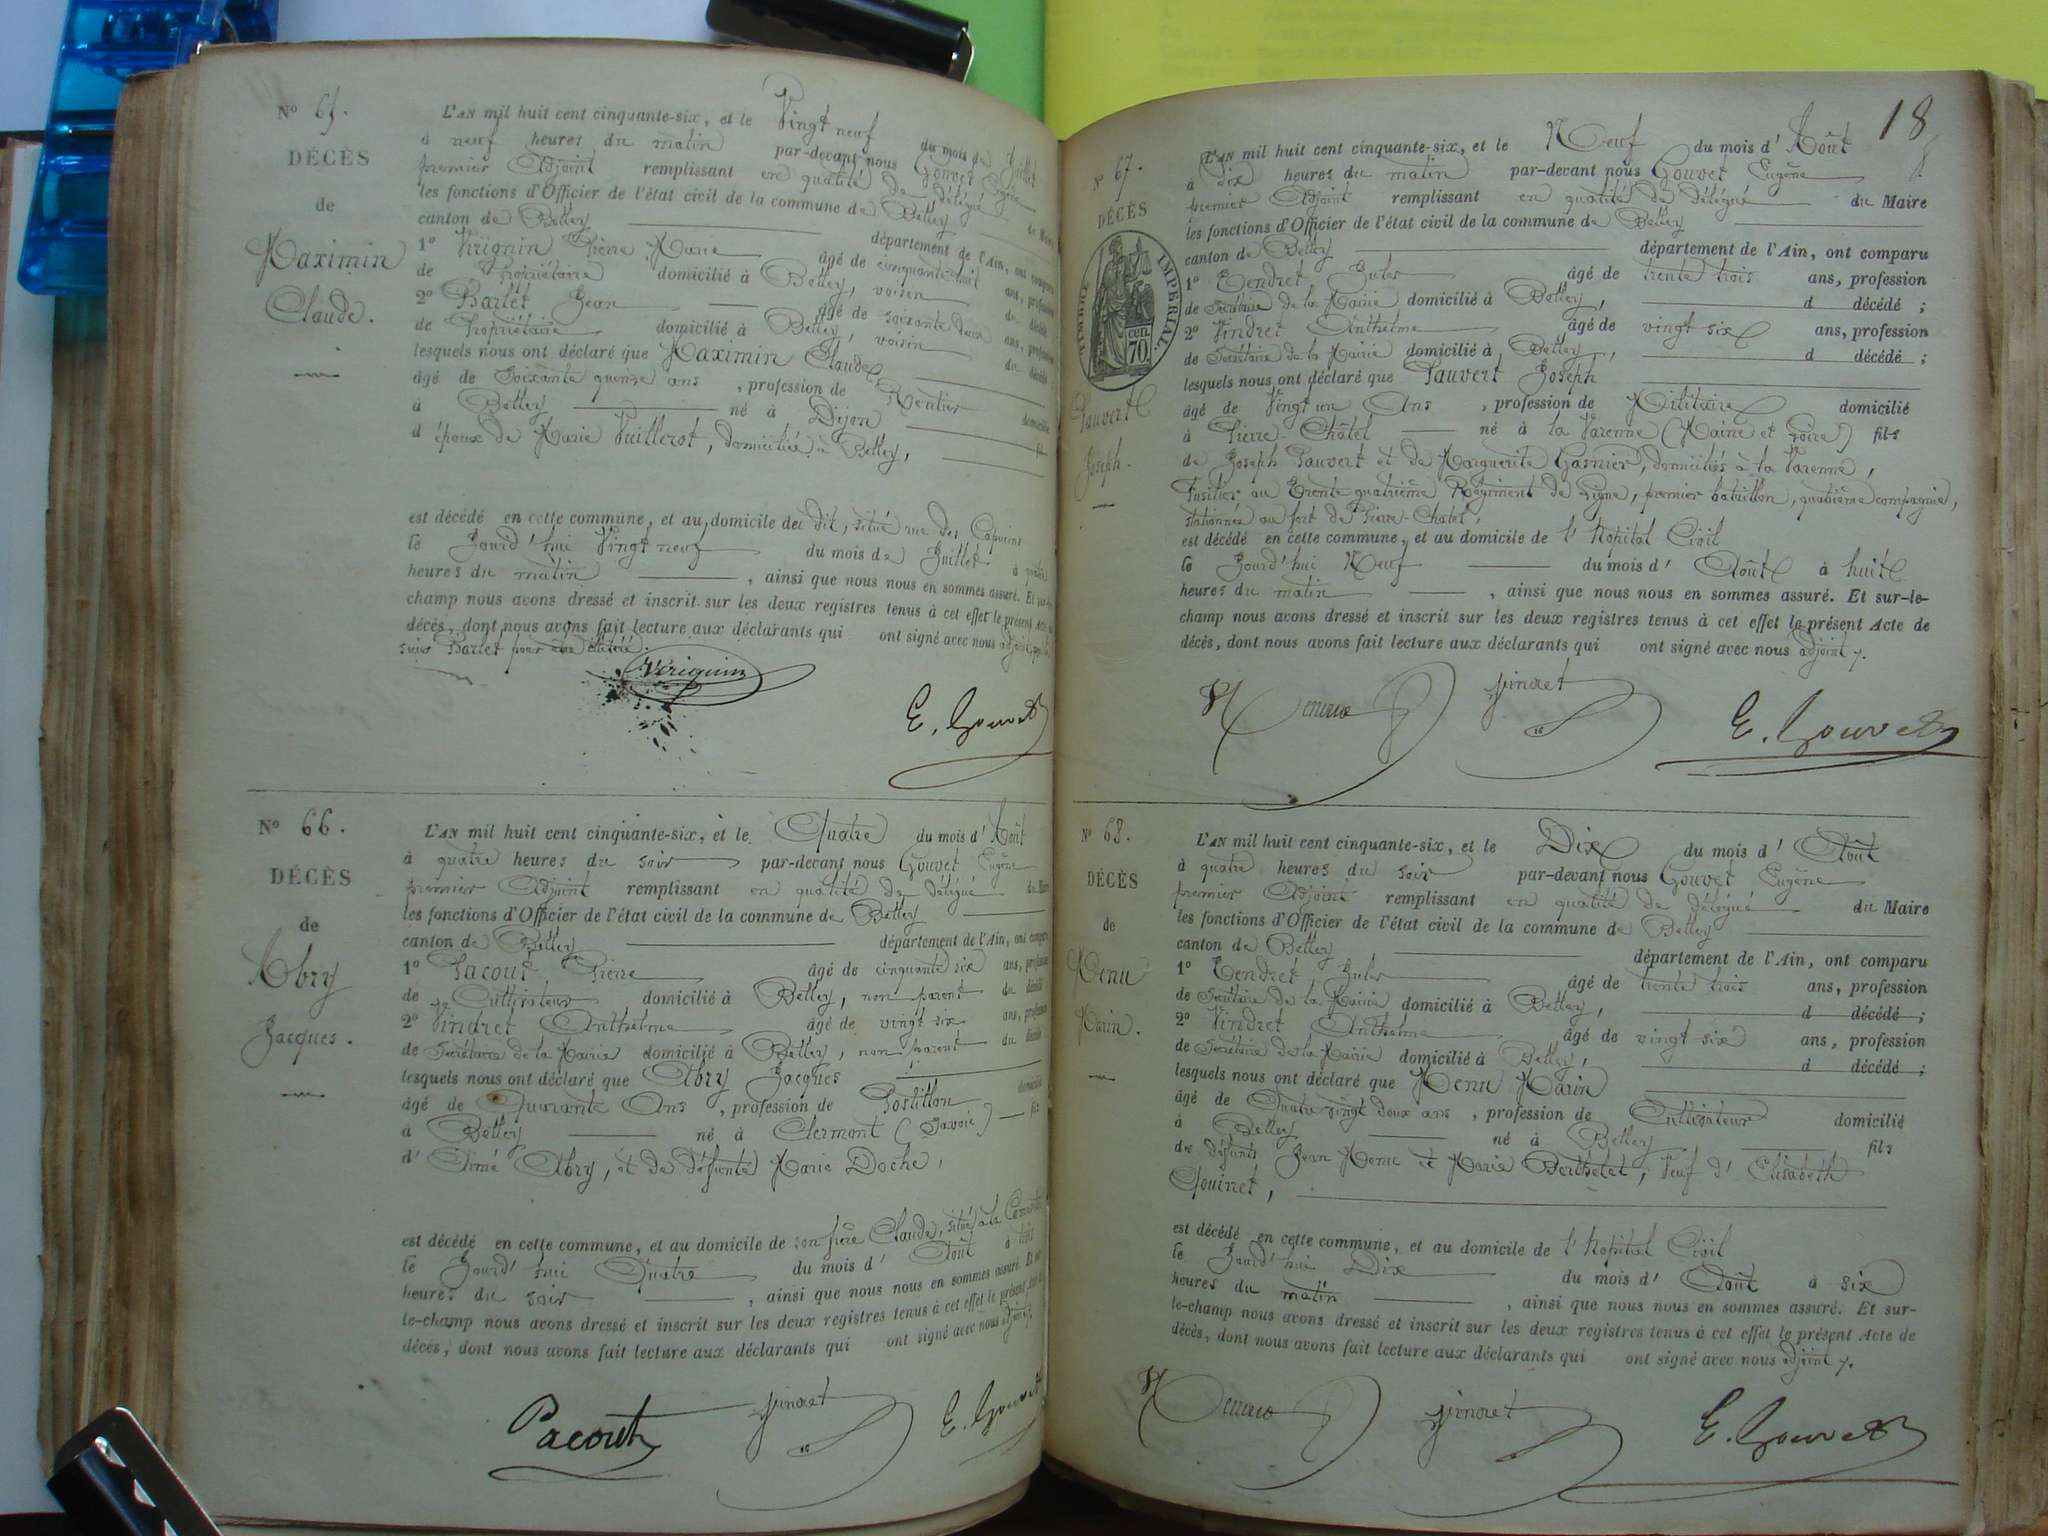 N° 65.
DÉCÈS
de
Maximin
Claude.
L'AN mil huit cent cinquante-six, et le Vingt neuf du mois de Juillet
à neuf heures du matin par-devant nous Gouvet Eugène
premier Adjoint remplissant en qualité de délégué du Maire
les fonctions d'Officier de l'état civil de la commune de Belley
canton de Belley département de l'Ain, ont comparu
1° Virignin Pierre Marie âgé de cinquante huit ans, profession
de Propriétaire domicilié à Belley, voisin du décédé
2° Barlet Jean âgé de soixante deux ans, profession
de Propriétaire domicilié à Belley, voisin du décédé
lesquels nous ont déclaré que Maximin Claude
âgé de soixante quinze ans, profession de Rentier domicilié
à Belley né à Dijon fils
d'époux de Marie Vuillerot, domiciliée à Belley,
est décédé en cette commune, et au domicile du dit, situé rue des Capucins
le Jourd'hui Vingt neuf du mois de Juillet à quatre
heures du matin, ainsi que nous nous en sommes assuré. Et sur-le-
champ nous avons dressé et inscrit sur les deux registres tenus à cet effet le présent Acte de
décès, dont nous avons fait lecture aux déclarants qui ont signé avec nous adjoint,
sieur Barlet pour illitéré.
Virignin
E. Gouvet
N° 66.
DÉCÈS
de
Abry
Jacques.
L'AN mil huit cent cinquante-six, et le Quatre du mois d'Août
à quatre heures du soir par-devant nous Gouvet Eugène
premier Adjoint remplissant en qualité de délégué du Maire
les fonctions d'Officier de l'état civil de la commune de Belley
canton de Belley département de l'Ain, ont comparu
1° Pacout Pierre âgé de cinquante six ans, profession
de Cultivateur domicilié à Belley, non parent du décédé
2° Vindret Anthelme âgé de vingt six ans, profession
de Secrétaire de la Mairie domicilié à Belley, non parent du décédé
lesquels nous ont déclaré que Abry Jacques
âgé de Quarante Ans, profession de Postillon domicilié
à Belley né à Clermont (Savoie) fils
d'Aimé Abry, et de défunte Marie Doche,
est décédé en cette commune, et au domicile de son frère Claude, situé à la
le Jourd'hui Quatre du mois d'Août à trois
heures du soir, ainsi que nous nous en sommes assuré. Et sur-
le-champ nous avons dressé et inscrit sur les deux registres tenus à cet effet le présent Acte de
décès, dont nous avons fait lecture aux déclarants qui ont signé avec nous adjoint.
Pacout Vindret E. Gouvet
18
N° 67.
DÉCÈS
TIMBRE IMPÉRIAL
70 cen.
Pauvert
Joseph.
L'AN mil huit cent cinquante-six, et le Neuf du mois d'Août
à dix heures du matin par-devant nous Gouvet Eugène
premier Adjoint remplissant en qualité de délégué du Maire
les fonctions d'Officier de l'état civil de la commune de Belley
canton de Belley département de l'Ain, ont comparu
1° Tendret Jules âgé de trente trois ans, profession
de Secrétaire de la Mairie domicilié à Belley, d décédé ;
2° Vindret Anthelme âgé de vingt six ans, profession
de Secrétaire de la Mairie domicilié à Belley, d décédé ;
lesquels nous ont déclaré que Pauvert Joseph
âgé de Vingt un Ans, profession de Militaire domicilié
à Pierre-Châtel né à la Varenne (Maine et Loire) fils
de Joseph Pauvert et de Marguerite Gasnier, domiciliés à la Varenne,
Fusilier au Trente quatrième Régiment de Ligne, premier bataillon, quatrième compagnie,
stationnée au fort de Pierre-Châtel,
est décédé en cette commune, et au domicile de l'Hopital Civil
le Jourd'hui Neuf du mois d'Août à huit
heures du matin, ainsi que nous nous en sommes assuré. Et sur-le-
champ nous avons dressé et inscrit sur les deux registres tenus à cet effet le présent Acte de
décès, dont nous avons fait lecture aux déclarants qui ont signé avec nous adjoint.
Vindret E. Gouvet
N° 68.
DÉCÈS
de
Menu
Marin.
L'AN mil huit cent cinquante-six, et le Dix du mois d'Août
à quatre heures du soir par-devant nous Gouvet Eugène
premier Adjoint remplissant en qualité de délégué du Maire
les fonctions d'Officier de l'état civil de la commune de Belley
canton de Belley département de l'Ain, ont comparu
1° Tendret Jules âgé de trente trois ans, profession
de Secrétaire de la Mairie domicilié à Belley, d décédé ;
2° Vindret Anthelme âgé de vingt six ans, profession
de Secrétaire de la Mairie domicilié à Belley, d décédé ;
lesquels nous ont déclaré que Menu Marin
âgé de Quatre vingt deux ans, profession de Cultivateur domicilié
à Belley né à Belley fils
des défunts Jean Menu et Marie Berthelet, Veuf d'Elisabeth
Gouinet,
est décédé en cette commune, et au domicile de l'Hopital Civil
le Jourd'hui Dix du mois d'Août à six
heures du matin, ainsi que nous nous en sommes assuré. Et sur-
le-champ nous avons dressé et inscrit sur les deux registres tenus à cet effet le présent Acte de
décès, dont nous avons fait lecture aux déclarants qui ont signé avec nous adjoint.
Vindret E. Gouvet